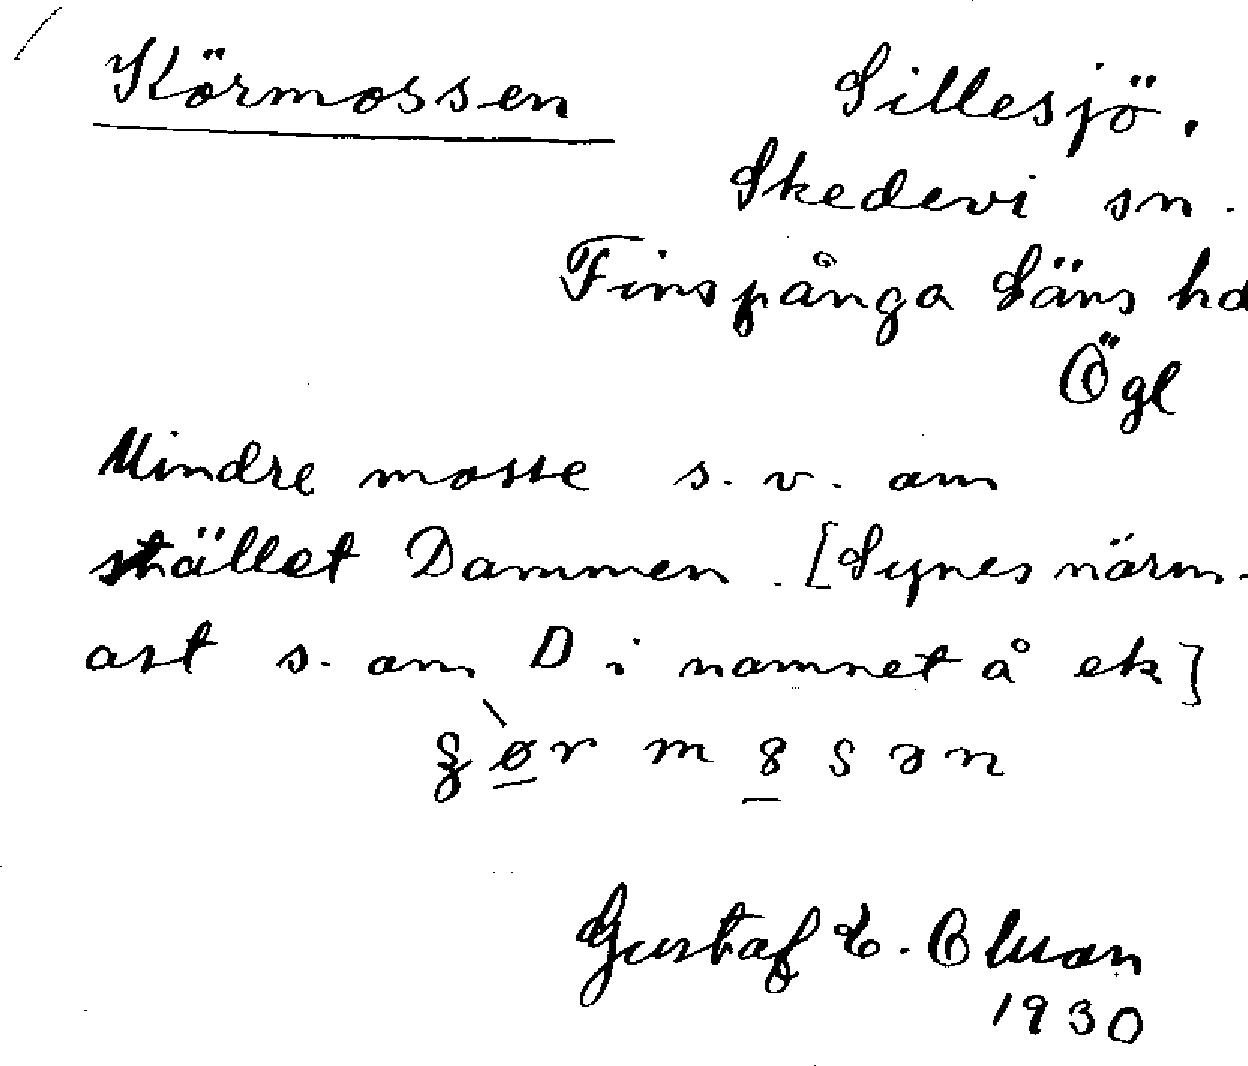 Körmossen
Sillesjö.
Skedevi sn.
Finspånga Läns hd
Ögl
Mindre mosse s. v. om
stället Dammen. [Synes närm-
ast s. om D i namnet å ek]
1930